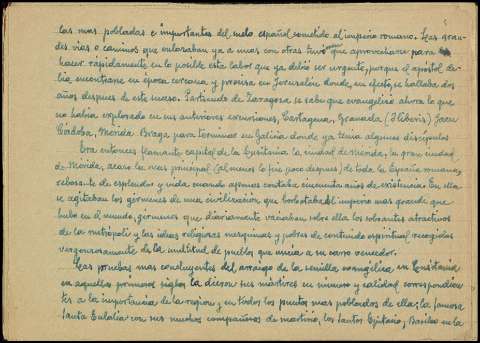 las mas pobladas e importantes del suelo español sometido al imperio romano. Las gran-
des vias o caminos que enlazaban ya a unas con otras tuvo que aprovecharse para
hacer rapidamente en lo posible esta labor que ya debió ser urgente, porque el apóstol de-
bia encontrarse en época cercana y precisa en Jerusalén donde, en efecto, se hallaba dos
años despues de este suceso. Partiendo de Zaragoza se sabe que evangelizó ahora lo que
no habia explorado en sus anteriores excursiones, Cartagena, Granada (Iliberis) Jaen
Córdoba, Mérida Braga para terminar en Galicia donde ya tenia algunos discipulos
Era entonces flamante capital de la Lusitania la ciudad de Merida, la gran ciudad
de Mérida, acaso la mas principal (al menos lo fué poco despues) de toda la España romana,
rebosante de esplendor y vida cuando apenas contaba cincuenta años de existencia. En ella
se agitaban los gérmenes de una civilizacion que borboteaba el imperio mas grande que
hubo en el mundo, gérmenes que diariamente vaciaban sobre ella los sobrantes atractivos
de la metrópoli y las ideas religiosas mezquinas y pobres de contenido espiritual recogidas
vergonzosamente de la multitud de pueblos que uncia a su carro vencedor.
Las pruebas mas concluyentes del arraigo de la semilla evangélica en Lusitania
en aquellos primeros siglos la dieron sus mártires en número y calidad correspondien-
tes a la importancia de la region, y en todos los puntos mas poblados de ella; la famosa
Santa Eulalia con sus muchos compañeros de martirio, los Santos Epitacio, Basileo en la